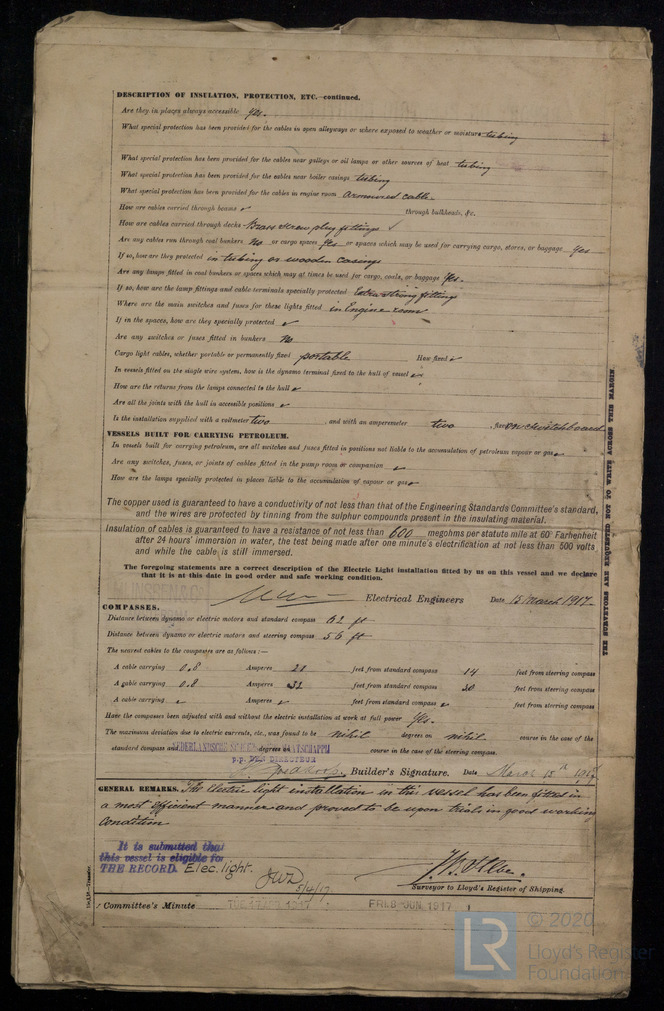 DESCRIPTION OF INSULATION, PROTECTION, ETC.—continued.
Are they in places always accessible yes.
What special protection has been provided for the cables in open alleyways or where exposed to weather or moisture tubing
What special protection has been provided for the cables near galleys or oil lamps or other sources of heat tubing
What special protection has been provided for the cables near boiler casings tubing
What special protection has been provided for the cables in engine room armoured cable
How are cables carried through beams ✓ through bulkheads, &c.
How are cables carried through decks Brass screw plug fittings ✓
Are any cables run through coal bunkers No or cargo spaces yes or spaces which may be used for carrying cargo, stores, or baggage yes
If so, how are they protected in tubing or wooden casings
Are any lamps fitted in coal bunkers or spaces which may at times be used for cargo, coals, or baggage yes.
If so, how are the lamp fittings and cable terminals specially protected Extra strong fittings
Where are the main switches and fuses for these lights fitted in Engine room
If in the spaces, how are they specially protected ✓
Are any switches or fuses fitted in bunkers No
Cargo light cables, whether portable or permanently fixed portable How fixed ✓
In vessels fitted on the single wire system, how is the dynamo terminal fixed to the hull of vessel ✓
How are the returns from the lamps connected to the hull ✓
Are all the joints with the hull in accessible positions ✓
Is the installation supplied with a voltmeter two , and with an amperemeter two , fixed on switchboard
VESSELS BUILT FOR CARRYING PETROLEUM.
In vessels built for carrying petroleum, are all switches and fuses fitted in positions not liable to the accumulation of petroleum vapour or gas ✓
Are any switches, fuses, or joints of cables fitted in the pump room or companion ✓
How are the lamps specially protected in places liable to the accumulation of vapour or gas ✓
The copper used is guaranteed to have a conductivity of not less than that of the Engineering Standards Committee's standard,
and the wires are protected by tinning from the sulphur compounds present in the insulating material.
Insulation of cables is guaranteed to have a resistance of not less than 600 megohms per statute mile at 60° Farhenheit
after 24 hours' immersion in water, the test being made after one minute's electrification at not less than 500 volts
and while the cable is still immersed.
The foregoing statements are a correct description of the Electric Light installation fitted by us on this vessel and we declare
that it is at this date in good order and safe working condition.
Electrical Engineers Date 15 March 1917
COMPASSES.
Distance between dynamo or electric motors and standard compass 62 ft
Distance between dynamo or electric motors and steering compass 56 ft
The nearest cables to the compasses are as follows:—
A cable carrying 0.8 Amperes 28 feet from standard compass 14 feet from steering compass
A cable carrying 0.8 Amperes 32 feet from standard compass 20 feet from steering compass
A cable carrying ✓ Amperes ✓ feet from standard compass ✓ feet from steering compass
Have the compasses been adjusted with and without the electric installation at work at full power yes.
The maximum deviation due to electric currents, etc., was found to be nihil degrees on nihil course in the case of the
standard compass and degrees on course in the case of the steering compass.
NEDERLANDSCHE SCHEEPSBOUW MAATSCHAPPIJ
p.p. DEN DIRECTEUR
Builder's Signature. Date March 15th 1917
GENERAL REMARKS. The Electric light installation in the vessel has been fitted in
a most efficient manner and proved to be upon trials in good working
condition
It is submitted that
this vessel is eligible for
THE RECORD. Elec. light.
5/4/17
Surveyor to Lloyd's Register of Shipping.
Committee's Minute FRI. 8 JUN. 1917
THE SURVEYORS ARE REQUESTED NOT TO WRITE ACROSS THIS MARGIN.
LR
© 2020
Lloyd's Register
Foundation